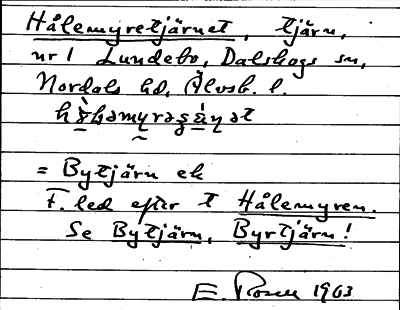 Hålemyretjärnet, tjärn,
nr 1 Lundebo, Dalskogs sn,
Nordals hd, Älvsb. l.
= Bytjärn ek
F. led efter t Hålemyren.
Se Bytjärn, Byrtjärn!
E. Rosen 1963